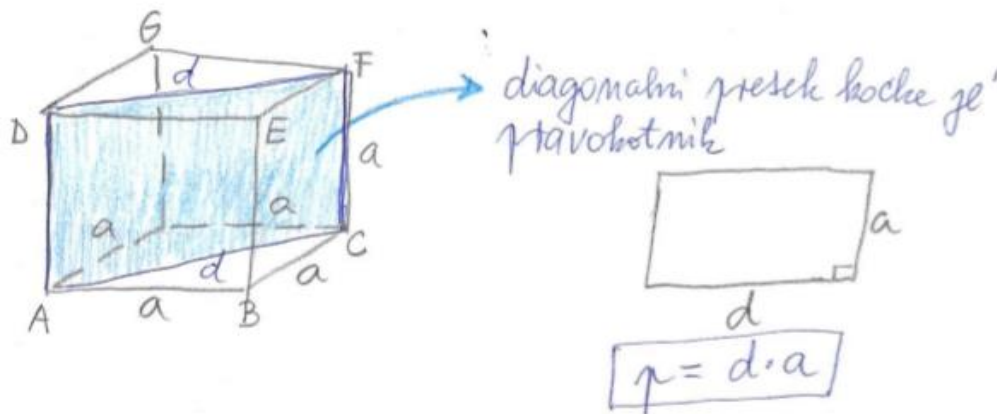 G
d
F
D
E
a
a
a
C
d
a
A
a
B
diagonalni presek kocke je
pravokotnik
a
d
p = d·a